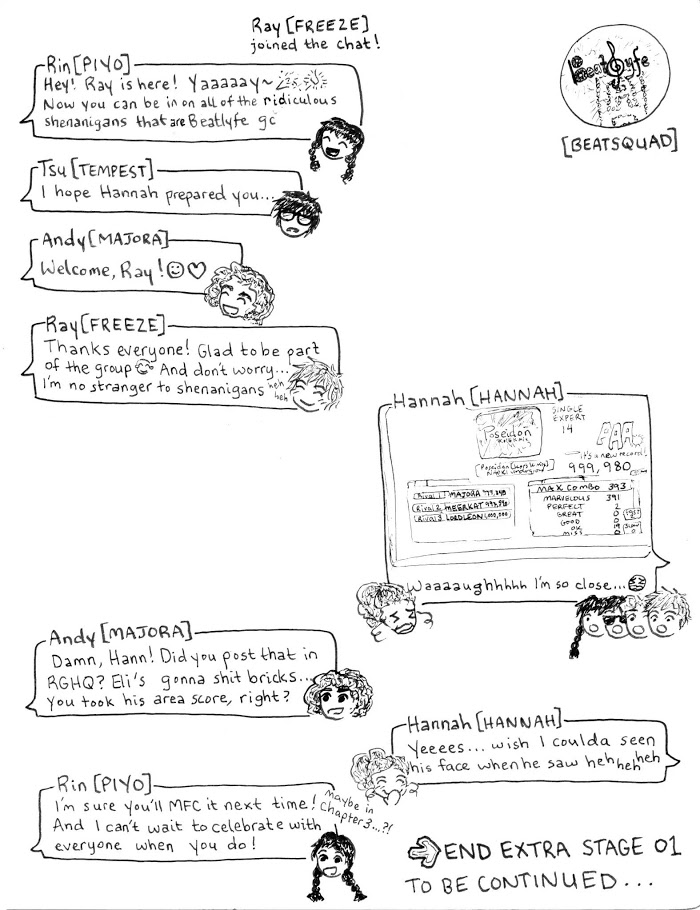 Ray [FREEZE]
joined the chat!
Beatlyfe
[BEATSQUAD]
Rin [PIYO]
Hey! Ray is here! Yaaaaay~
Now you can be in on all of the ridiculous
shenanigans that are Beatlyfe gc
Tsu [TEMPEST]
I hope Hannah prepared you...
Andy [MAJORA]
Welcome, Ray!
Ray [FREEZE]
Thanks everyone! Glad to be part
of the group And don't worry...
I'm no stranger to shenanigans heh
heh
Hannah [HANNAH]
Poseidon
SINGLE
EXPERT
14
AAA
it's a new record!
999,980
Rival 1 MAJORA
Rival 2 MEERKAT
Rival 3 LORDLEON
MAX COMBO 393
MARVELOUS 391
PERFECT 2
GREAT 0
GOOD 0
OK
MISS 0
Waaaaughhhhh I'm so close...
Andy [MAJORA]
Damn, Hann! Did you post that in
RGHQ? Eli's gonna shit bricks...
You took his area score, right?
Hannah [HANNAH]
Yeeees... wish I coulda seen
his face when he saw heh heh heh
Rin [PIYO]
I'm sure you'll MFC it next time!
And I can't wait to celebrate with
everyone when you do!
maybe in
Chapter 3...?!
END EXTRA STAGE 01
TO BE CONTINUED...